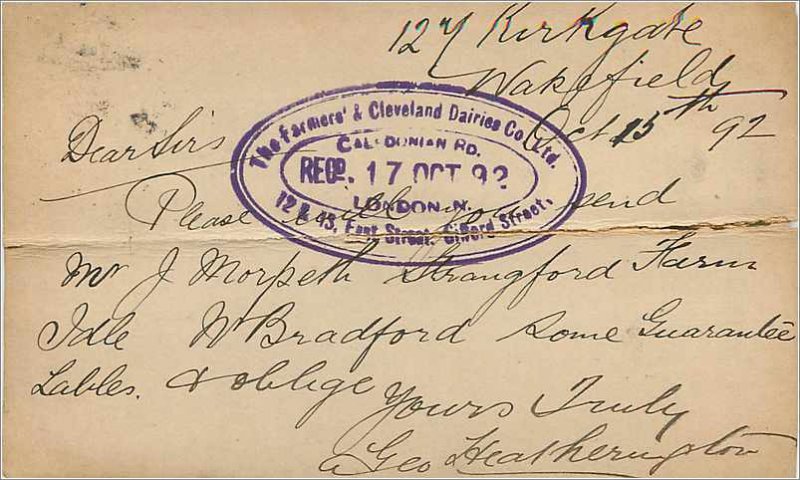 127 Kirkgate
Wakefield
Oct 15th 92
Dear Sirs
The Farmers' & Cleveland Dairies Co. Ltd.
CALEDONIAN RD.
RECD. 17 OCT 92
LONDON. N.
12 & 13, East Street, Gifford Street.
Please will you send
Mr J Morpeth Strangford Farm
Idle Nr Bradford some Guarantee
Lables. & oblige
Yours Truly
Geo Heatherington